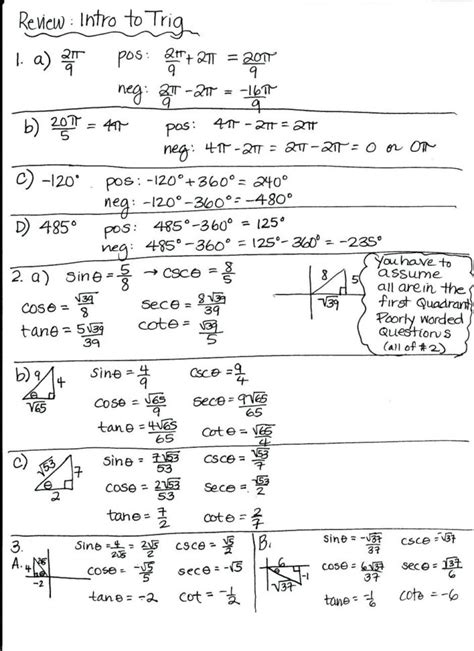 Review: Intro to Trig
1. a) 2π/9 pos: 2π/9 + 2π = 20π/9
neg: 2π/9 - 2π = -16π/9
b) 20π/5 = 4π pos: 4π - 2π = 2π
neg: 4π - 2π = 2π - 2π = 0 or 0π
C) -120° pos: -120° + 360° = 240°
neg: -120° - 360° = -480°
D) 485° pos: 485° - 360° = 125°
neg: 485° - 360° = 125° - 360° = -235°
2. a) sinθ = 5/8 → cscθ = 8/5
cosθ = √39/8 secθ = 8√39/39
tanθ = 5√39/39 cotθ = √39/5
8 5 √39
You have to
assume
all are in the
first Quadrant
Poorly worded
Questions
(all of #2)
b) 9 4 θ √65 sinθ = 4/9 cscθ = 9/4
cosθ = √65/9 secθ = 9√65/65
tanθ = 4√65/65 cotθ = √65/4
C) √53 7 θ 2 sinθ = 7√53/53 cscθ = √53/7
cosθ = 2√53/53 secθ = √53/2
tanθ = 7/2 cotθ = 2/7
3.
A. 4 θ -2 sinθ = 4/2√5 = 2√5/5 cscθ = √5/2
cosθ = -√5/5 secθ = -√5
tanθ = -2 cot = -1/2
B. 6 -1 √37 sinθ = -√37/37 cscθ = -√37
cosθ = 6√37/37 secθ = √37/6
tanθ = -1/6 cotθ = -6